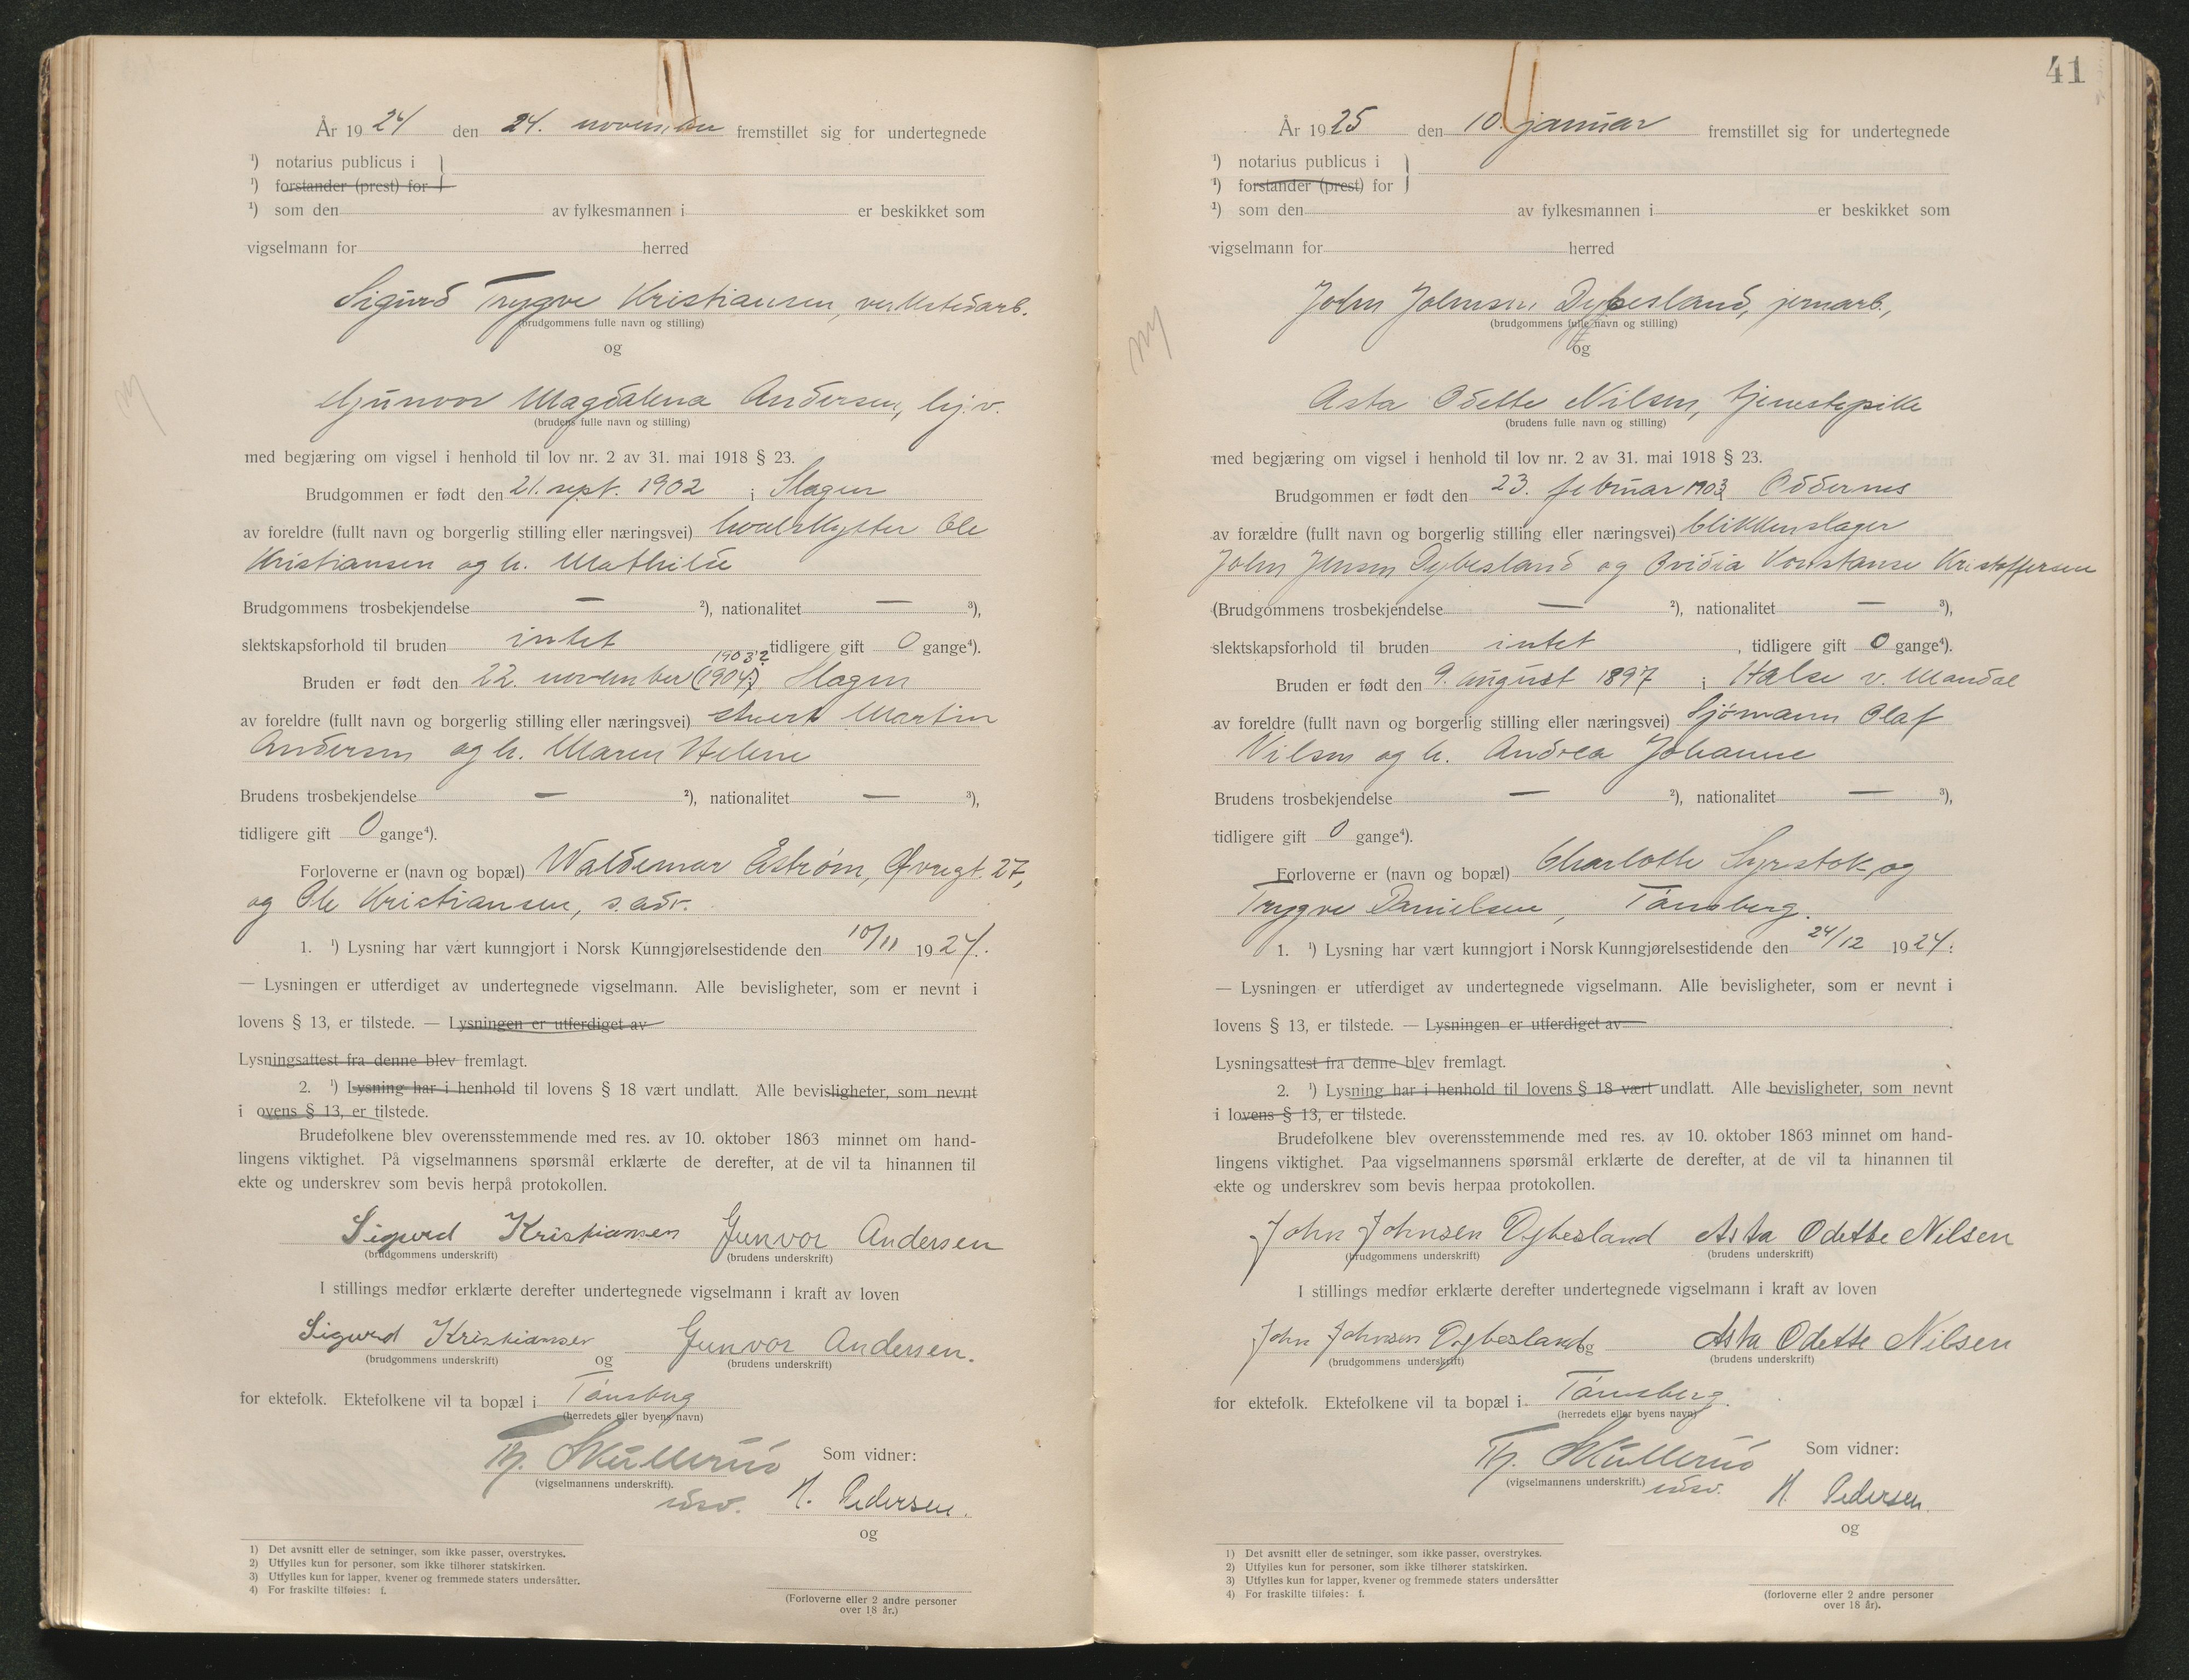 År 1924 den 24. november fremstillet sig for undertegnede
¹) notarius publicus i }
¹) forstander (prest) for }
¹) som den av fylkesmannen i er beskikket som
vigselmann for herred
Sigurd Trygve Kristiansen, verkstedarb.
(brudgommens fulle navn og stilling)
og
Gunvor Magdalena Andersen, hj.v.
(brudens fulle navn og stilling)
med begjæring om vigsel i henhold til lov nr. 2 av 31. mai 1918 § 23.
Brudgommen er født den 21. sept. 1902 i Slagen
av foreldre (fullt navn og borgerlig stilling eller næringsvei) hvalskytter Ole
Kristiansen og h. Mathilde
Brudgommens trosbekjendelse — ²), nationalitet — ³),
slektskapsforhold til bruden intet tidligere gift 0 gange⁴).
1903?
Bruden er født den 22. november (1904?) Slagen
av foreldre (fullt navn og borgerlig stilling eller næringsvei) stuert Martin
Andersen og h. Maren Helene
Brudens trosbekjendelse — ²), nationalitet — ³),
tidligere gift 0 gange⁴).
Forloverne er (navn og bopæl) Waldemar Åstrøm, Øvregt. 27,
og Ole Kristiansen, s. adr.
1. ¹) Lysning har vært kunngjort i Norsk Kunngjørelsestidende den 10/11 1924.
— Lysningen er utferdiget av undertegnede vigselmann. Alle bevisligheter, som er nevnt i
lovens § 13, er tilstede. — Lysningen er utferdiget av
Lysningsattest fra denne blev fremlagt.
2. ¹) Lysning har i henhold til lovens § 18 vært undlatt. Alle bevisligheter, som nevnt
i ovens § 13, er tilstede.
Brudefolkene blev overensstemmende med res. av 10. oktober 1863 minnet om hand-
lingens viktighet. På vigselmannens spørsmål erklærte de derefter, at de vil ta hinannen til
ekte og underskrev som bevis herpå protokollen.
Sigurd Kristiansen Gunvor Andersen
(brudgommens underskrift) (brudens underskrift)
I stillings medfør erklærte derefter undertegnede vigselmann i kraft av loven
Sigurd Kristiansen og Gunvor Andersen.
(brudgommens underskrift) (brudens underskrift)
for ektefolk. Ektefolkene vil ta bopæl i Tønsberg
(herredets eller byens navn)
Th. Skullerud Som vidner:
(vigselmannens underskrift).
H. Pedersen.
og
1) Det avsnitt eller de setninger, som ikke passer, overstrykes.
2) Utfylles kun for personer, som ikke tilhører statskirken.
3) Utfylles kun for lapper, kvener og fremmede staters undersåtter.
4) For fraskilte tilføies: f.
(Forloverne eller 2 andre personer
over 18 år.)
41
År 1925 den 10. januar fremstillet sig for undertegnede
¹) notarius publicus i }
¹) forstander (prest) for }
¹) som den av fylkesmannen i er beskikket som
vigselmann for herred
John Johnsen Dybesland, jernarb.,
(brudgommens fulle navn og stilling)
og
Asta Odette Nilsen, tjenestepike
(brudens fulle navn og stilling)
med begjæring om vigsel i henhold til lov nr. 2 av 31. mai 1918 § 23.
Brudgommen er født den 23. februar 1903 Oddernes
av forældre (fullt navn og borgerlig stilling eller næringsvei) blikkenslager
John Jensen Dybesland og Ovidia Konstanse Kristoffersen
(Brudgommens trosbekjendelse — ²), nationalitet — ³),
slektskapsforhold til bruden intet, tidligere gift 0 gange⁴).
Bruden er født den 9. august 1897 i Halse v. Mandal
av foreldre (fullt navn og borgerlig stilling eller næringsvei) Sjømann Olaf
Nilsen og h. Andrea Johanne
Brudens trosbekjendelse — ²), nationalitet — ³),
tidligere gift 0 gange⁴).
Forloverne er (navn og bopæl) Charlotte Syrstok og
Trygve Danielsen, Tønsberg.
1. ¹) Lysning har vært kunngjort i Norsk Kunngjørelsestidende den 24/12 1924.
— Lysningen er utferdiget av undertegnede vigselmann. Alle bevisligheter, som er nevnt i
lovens § 13, er tilstede. — Lysningen er utferdiget av
Lysningsattest fra denne blev fremlagt.
2. ¹) Lysning har i henhold til lovens § 18 vært undlatt. Alle bevisligheter, som nevnt
i lovens § 13, er tilstede.
Brudefolkene blev overensstemmende med res. av 10. oktober 1863 minnet om hand-
lingens viktighet. Paa vigselmannens spørsmål erklærte de derefter, at de vil ta hinannen til
ekte og underskrev som bevis herpaa protokollen.
John Johnsen Dybesland Asta Odette Nilsen
(brudgommens underskrift) (brudens underskrift)
I stillings medfør erklærte derefter undertegnede vigselmann i kraft av loven
John Johnsen Dybesland og Asta Odette Nilsen
(brudgommens underskrift) (brudens underskrift)
for ektefolk. Ektefolkene vil ta bopæl i Tønsberg.
(herredets eller byens navn)
Th. Skullerud Som vidner:
(vigselmannens underskrift.)
H. Pedersen.
og
1) Det avsnitt eller de setninger, som ikke passer, overstrykes.
2) Utfylles kun for personer, som ikke tilhører statskirken.
3) Utfylles kun for lapper, kvener og fremmede staters undersåtter
4) For fraskilte tilføies: f.
(forloverne eller 2 andre personer
over 18 år).